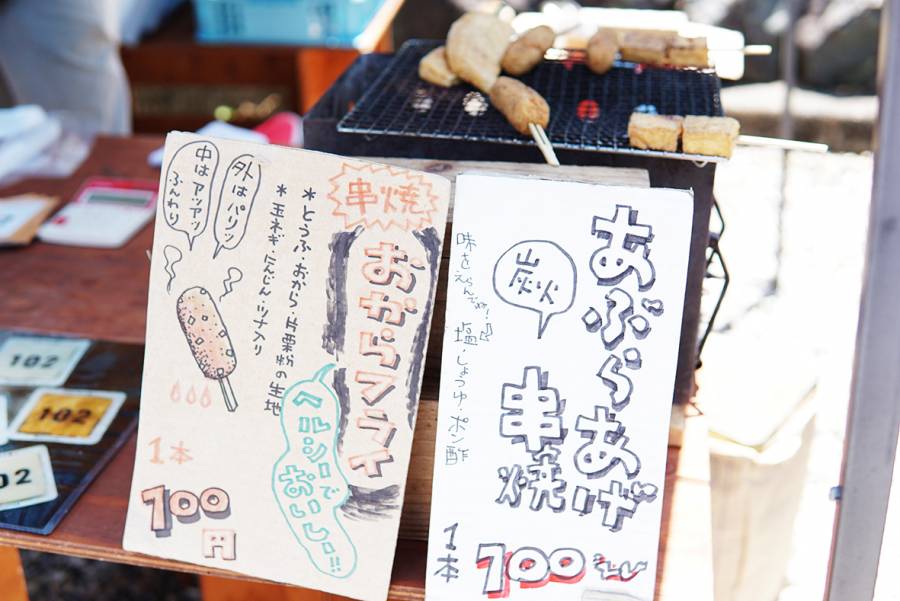 串焼
おからフライ
*とうふ・おから・片栗粉の生地
*玉ネギ・にんじん・ツナ入り
外はパリッ
中はアツアツ
ふんわり
ヘルシーで
おいしー!!
1本
100
円
あぶらあげ
炭火
串焼
塩・しょうゆ・ポン酢
1本
100
102
102
02